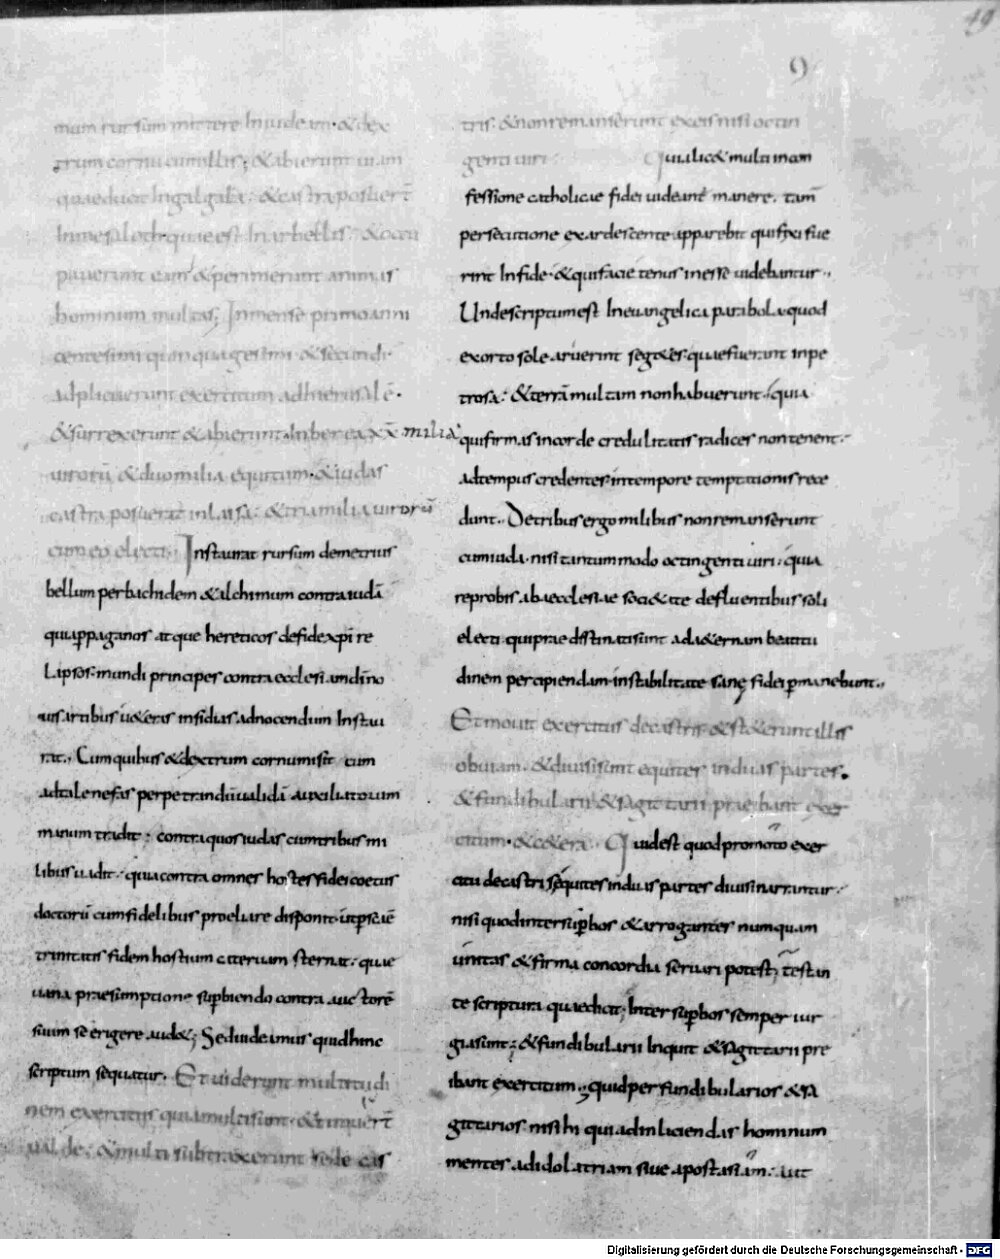 19
9
mam rursum mittere In iudeam · & dex
trum cornu cum illis; & abierunt uiam
quae ducit In galgala: & castra posuer̄
In mesaloth quae est In arbellis: & occu
pauerunt eam & peremerunt animas
hominum multas; In mense primo anni
centesimi quinquagesimi & secundi
adplicuerunt exercitum ad hierusalē·
& surrexerunt & abierunt· In berea xx milia
uirorū & duo milia equitum · & iudas
castra posuerat in laisa: & tria milia uirorū
cum eo electi. Instaurat rursum demetrius
bellum per bachidem & alchimum contra iudā
quia p paganos atque hereticos de fide xp̄i re
lapsos· mundi princeps contra ecclesiam dīno
uis artibus ueteres insidias ad nocendum Instau
rat., Cum quibus & dextrum cornu misit cum
ad tale nefas perpetrandū ualidā auxiliatorum
manum tradit: contra quos iudas cum tribus mi
libus uadit: quia contra omnes hostes fidei coetus
doctorū cum fidelibus proeliare disponit· ut p sc̄ae
trinitatis fidem hostium cateruam sternat: quae
uana praesumptione supbiendo contra auctorē
suum se erigere aud&; Sed uideamus quid hinc
scriptum sequatur. Et uiderunt multitudi
nem exercitus quia multi sunt· & timuer̄t
ualde: & multi subtraxerunt se de cas
tris· & non remanserunt ex eis nisi octin
genti uiri. Quia lic& multi in con
fessione catholicae fidei uideant̄ manere, tam̄
persecutione exardescente apparebit qui fixi fue
rint In fide· & qui facie tenus inesse uidebantur.,
Unde scriptum est In euangelica parabola quod
exorto sole aruerint seg&es quae fuerunt in pe
trosa: & terrā multam non habuerunt., quia
qui firmas in corde credulitatis radices non tenent·
ad tempus credentes in tempore temptationis rece
dunt., De tribus ergo milibus non remanserunt
cum iuda· nisi tantummodo octingenti uiri: quia
reprobis ab aecclesiae soci&ate defluentibus soli
electi qui praedistinati sunt ad a&ernam beatitu
dinem percipiendam· in stabilitate sanę fidei pmanebunt.,
Et mouit exercitus de castris & st&erunt illis
obuiam· & diuisi sunt equites in duas partes·
& fundibularii & sagittarii praeibant exer
citum· & c&era. Quid est quod promoto exer
citu de castris equites in duas partes diuisi narrantur·
nisi quod inter supbos & arrogantes numquam
unitas & firma concordia seruari potest; testan
te scriptura quae dicit; Inter supbos semper iur
gia sunt; & fundibularii Inquit & sagittarii pre
ibant exercitum., quid per fundibularios & sa
gittarios· nisi hi qui ad inliciendas hominum
mentes ad idolatriam siue apostasiam: aut
Digitalisierung gefördert durch die Deutsche Forschungsgemeinschaft - DFG